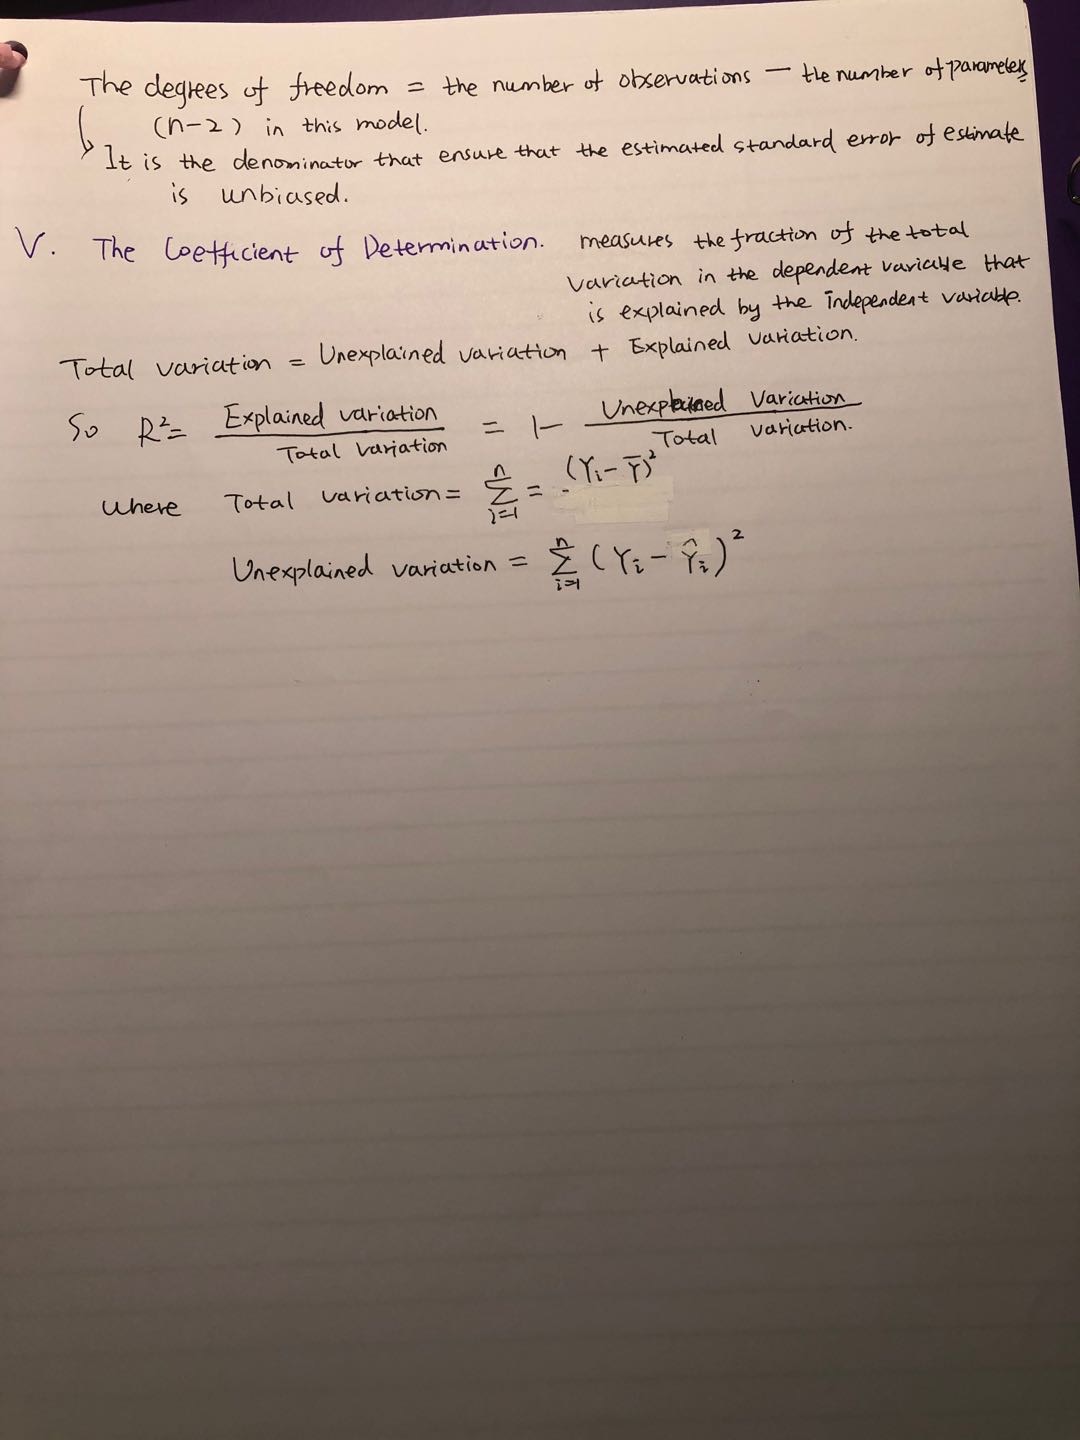 The degrees of freedom = the number of observations — the number of parameters
(n-2) in this model.
It is the denominator that ensure that the estimated standard error of estimate
is unbiased.
V. The Coefficient of Determination. measures the fraction of the total
variation in the dependent variable that
is explained by the independent variable.
Total variation = Unexplained variation + Explained variation.
So R²= Explained variation / Total variation = 1- Unexplained Variation / Total variation.
where Total variation = ∑ⁿᵢ₌₁ = (Yi - Ȳ)²
Unexplained variation = ∑ⁿᵢ₌₁ (Yi - Ŷi)²